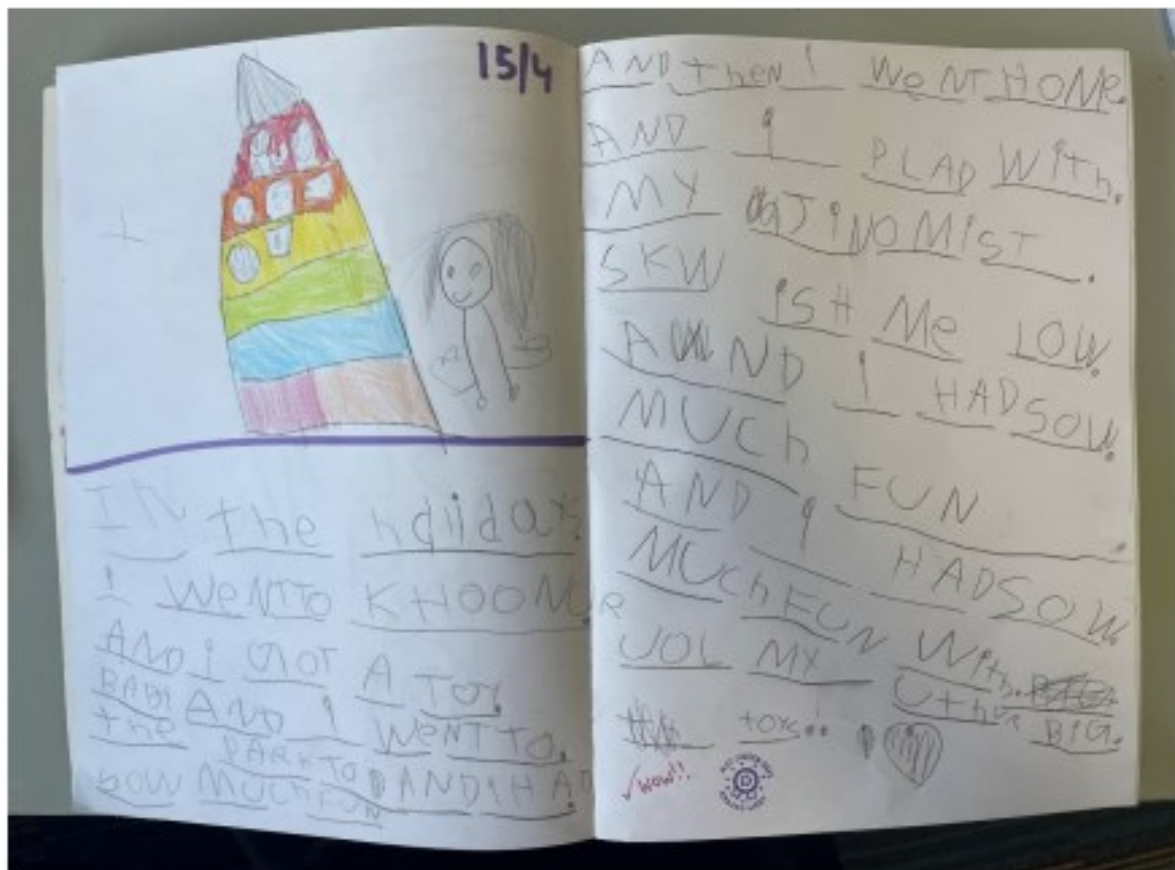 15/4
IN the holidays
I WeNTTO KHOONUR
AND i GOT A TOY.
BABY AND I WeNT TO.
the PARK TOO AND I HAD
SOW MUCH FUN
AND then I WeNT HOMe.
AND I PLAD With.
MY JINOMIST.
SKW ISH Me LOW.
AND I HAD SOW.
MUCh FUN.
AND I HAD SOW
MUCh FUN With.
UOL MY Uther BIG.
toys..
✓ WOW!!